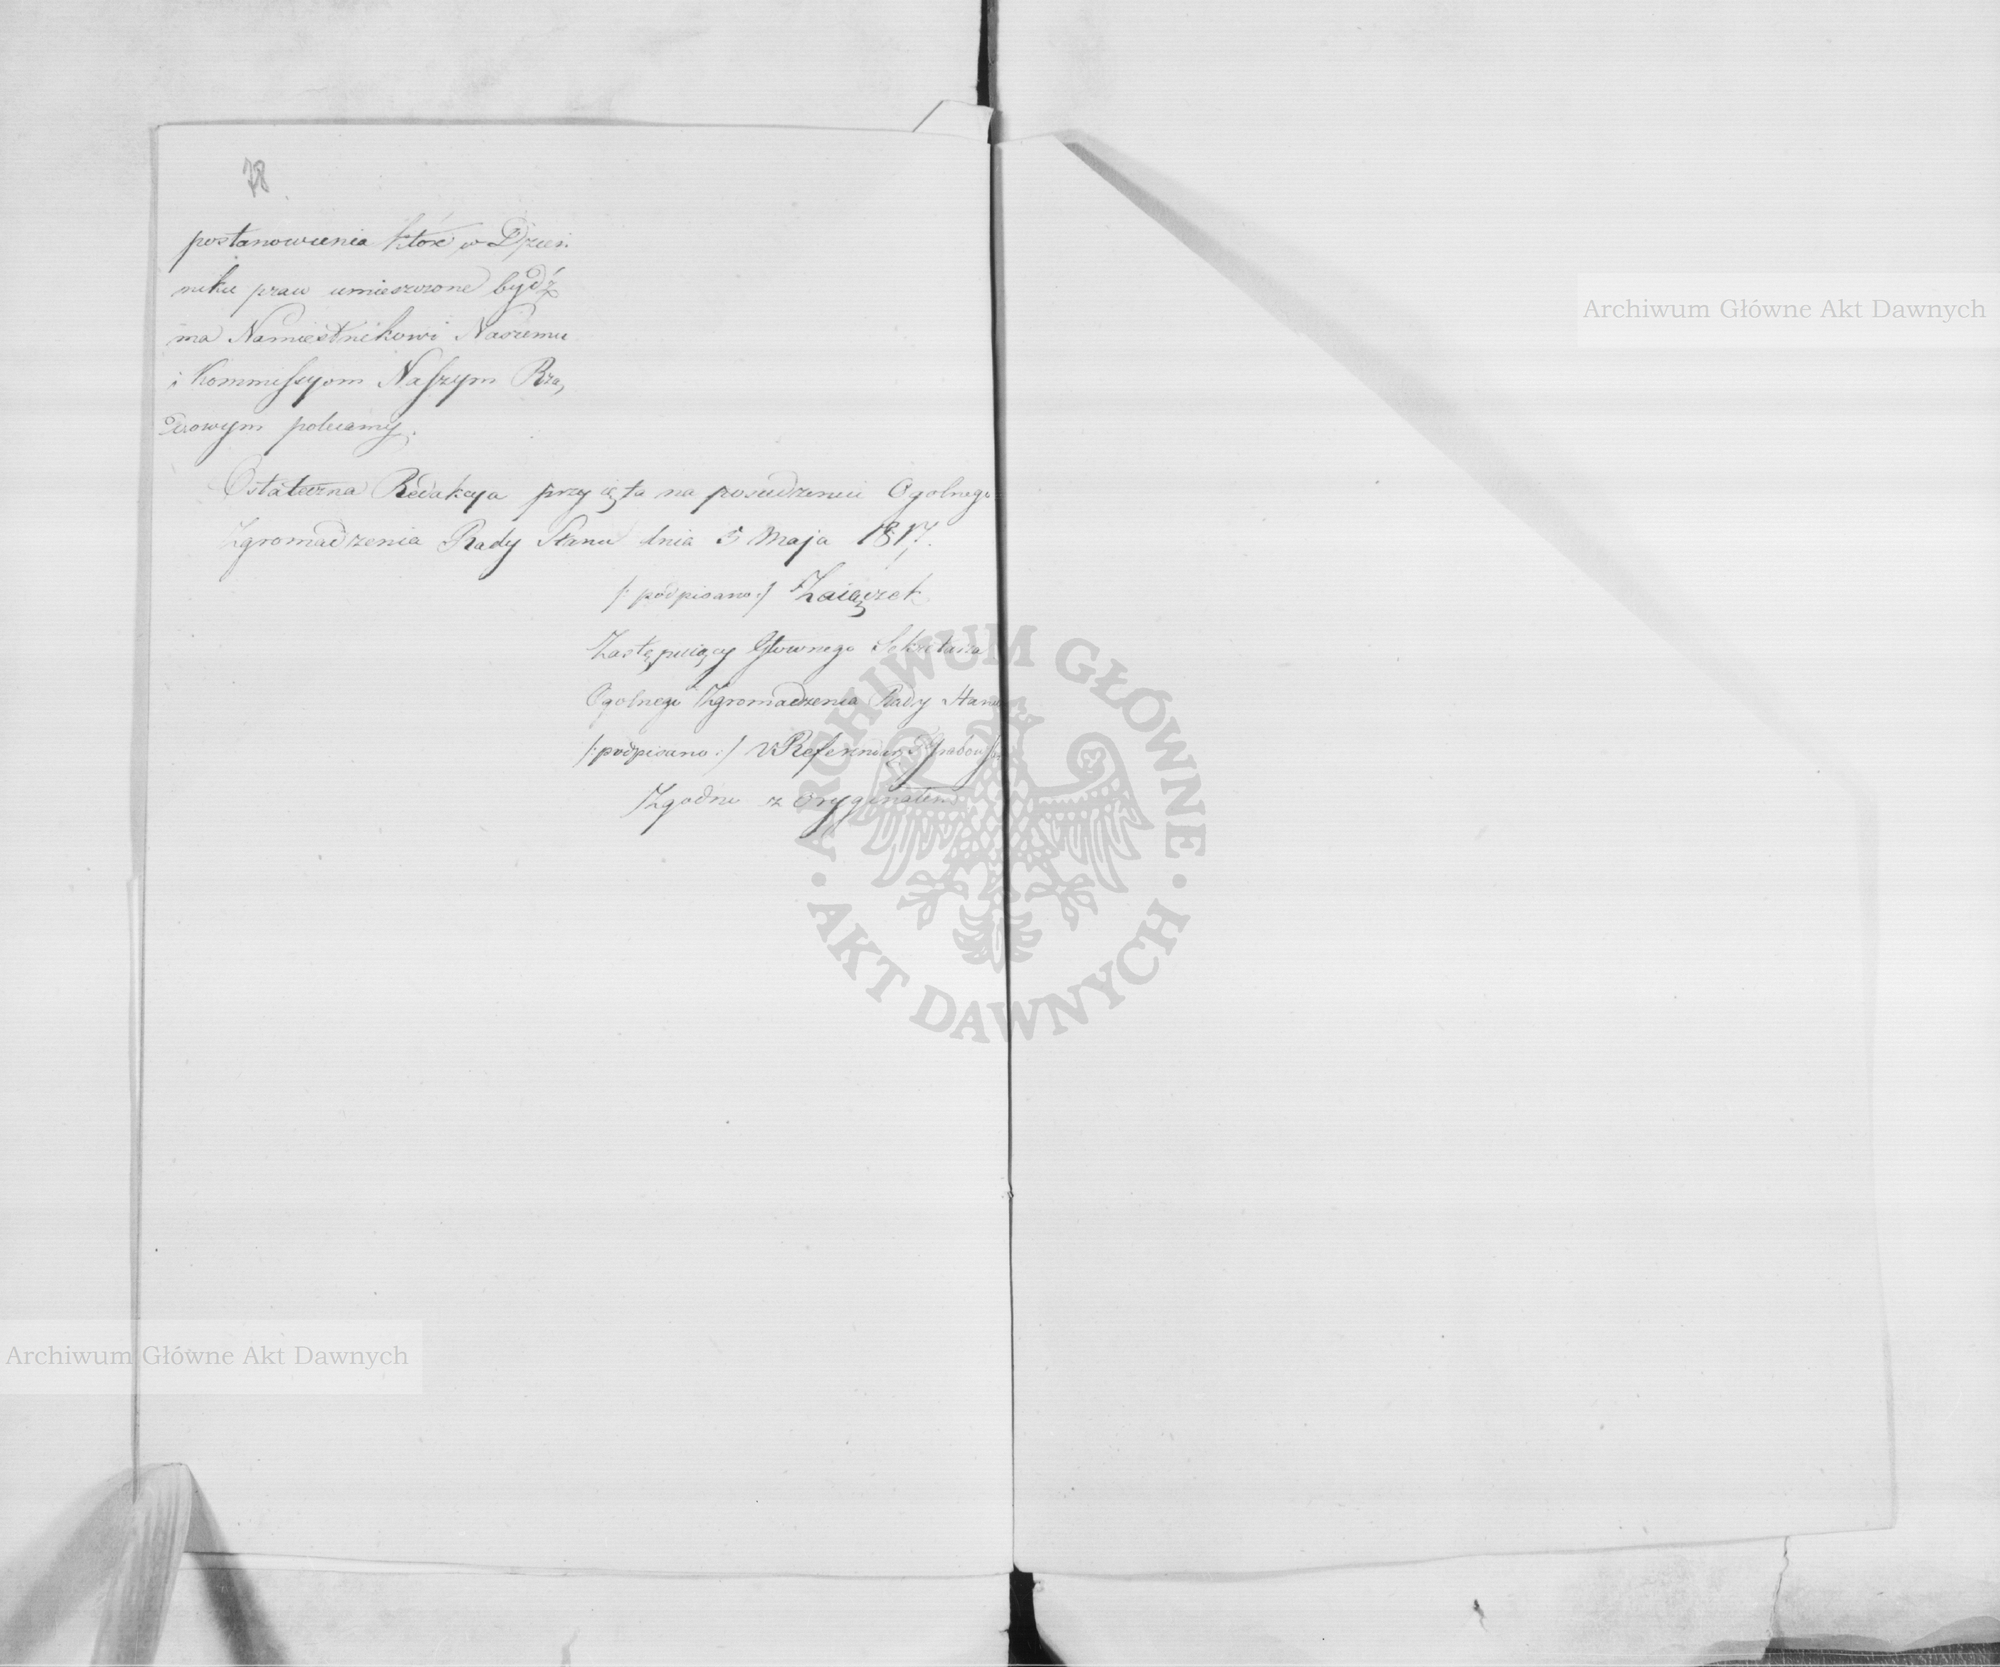 78
postanowienia które w Dzien-
niku praw umieszczone bydź
ma Namiestnikowi Naszemu
i Kommissyom Naszym Rzą-
dowym polecamy.
Ostateczna Redakcya przyięta na posiedzeniu Ogolnego
Zgromadzenia Rady Stanu dnia 5 Maja 1817.
/:podpisano:/ Zaiączek
Zastępuiący Głownego Sekretarza
Ogolnego Zgromadzenia Rady Stanu
/:podpisano:/ Referendarz
Zgodno z oryginałem
Archiwum Główne Akt Dawnych
ARCHIWUM GŁÓWNE AKT DAWNYCH
Archiwum Główne Akt Dawnych